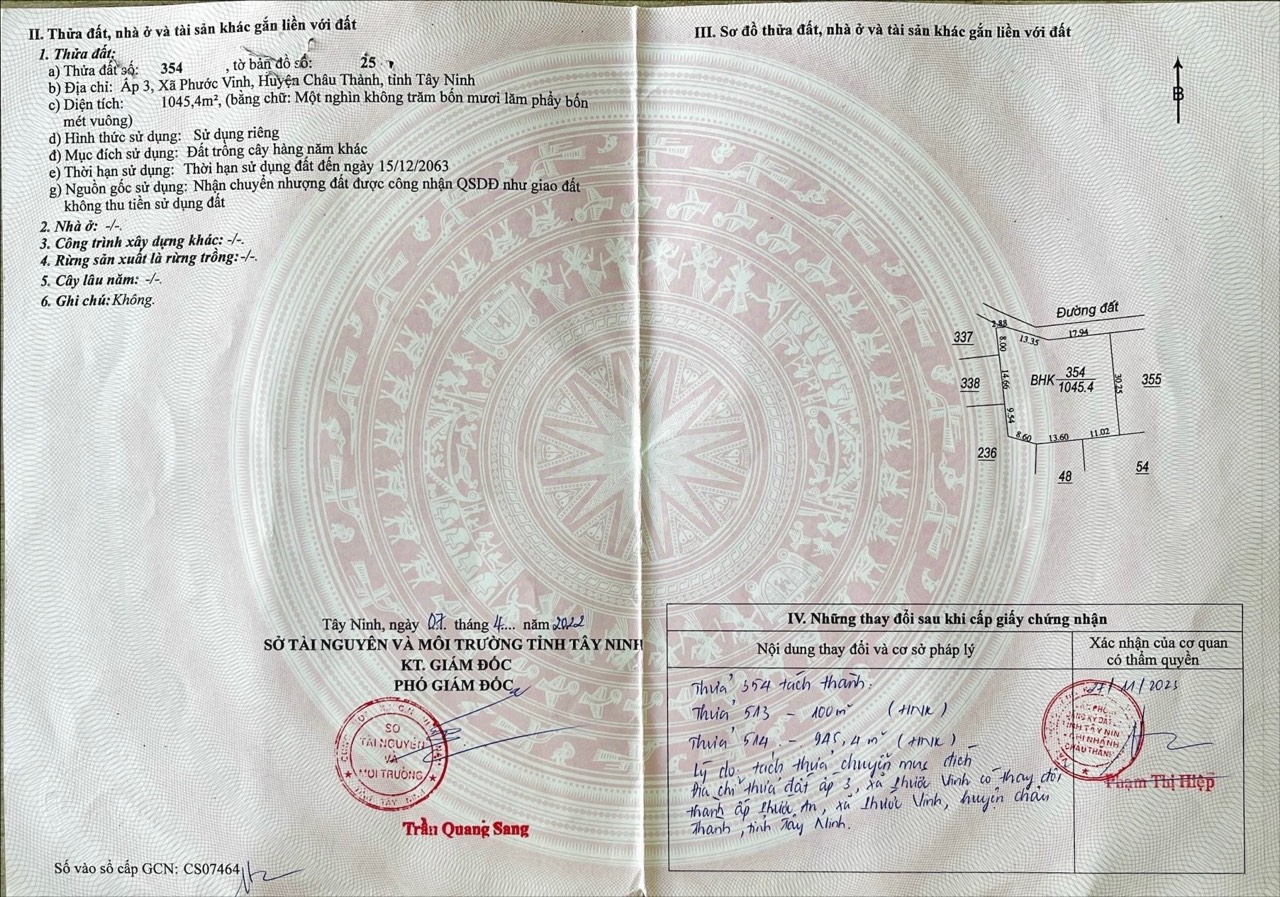 II. Thửa đất, nhà ở và tài sản khác gắn liền với đất
1. Thửa đất:
a) Thửa đất số: 354 , tờ bản đồ số: 25
b) Địa chỉ: Ấp 3, Xã Phước Vinh, Huyện Châu Thành, tỉnh Tây Ninh
c) Diện tích: 1045,4m², (bằng chữ: Một nghìn không trăm bốn mươi lăm phẩy bốn
mét vuông)
d) Hình thức sử dụng: Sử dụng riêng
đ) Mục đích sử dụng: Đất trồng cây hàng năm khác
e) Thời hạn sử dụng: Thời hạn sử dụng đất đến ngày 15/12/2063
g) Nguồn gốc sử dụng: Nhận chuyển nhượng đất được công nhận QSDĐ như giao đất
không thu tiền sử dụng đất
2. Nhà ở: -/-.
3. Công trình xây dựng khác: -/-.
4. Rừng sản xuất là rừng trồng: -/-.
5. Cây lâu năm: -/-.
6. Ghi chú: Không.
Tây Ninh, ngày 07. tháng 4.... năm 2022
SỞ TÀI NGUYÊN VÀ MÔI TRƯỜNG TỈNH TÂY NINH
KT. GIÁM ĐỐC
PHÓ GIÁM ĐỐC
SỞ
TÀI NGUYÊN
VÀ
MÔI TRƯỜNG
Trần Quang Sang
Số vào sổ cấp GCN: CS07464
III. Sơ đồ thửa đất, nhà ở và tài sản khác gắn liền với đất
B
Đường đất
2.88
13.35
17.94
337
8.00
338
14.66
BHK 354
1045.4
30.25
355
9.54
8.60
13.60
11.02
236
48
54
IV. Những thay đổi sau khi cấp giấy chứng nhận
Nội dung thay đổi và cơ sở pháp lý
Xác nhận của cơ quan
có thẩm quyền
Thửa 354 tách thành:
Thửa 513 - 100m² (HNK)
Thửa 514 - 945,4m² (HNK)
Lý do: tách thửa chuyển mục đích
Địa chỉ thửa đất ấp 3, xã Phước Vinh có thay đổi
thành ấp Phước An, xã Phước Vinh, huyện Châu
Thành, tỉnh Tây Ninh.
27/11/2023
ĐĂNG KÝ ĐẤT
TỈNH TÂY NINH
CHI NHÁNH
CHÂU THÀNH
Phạm Thị Hiệp